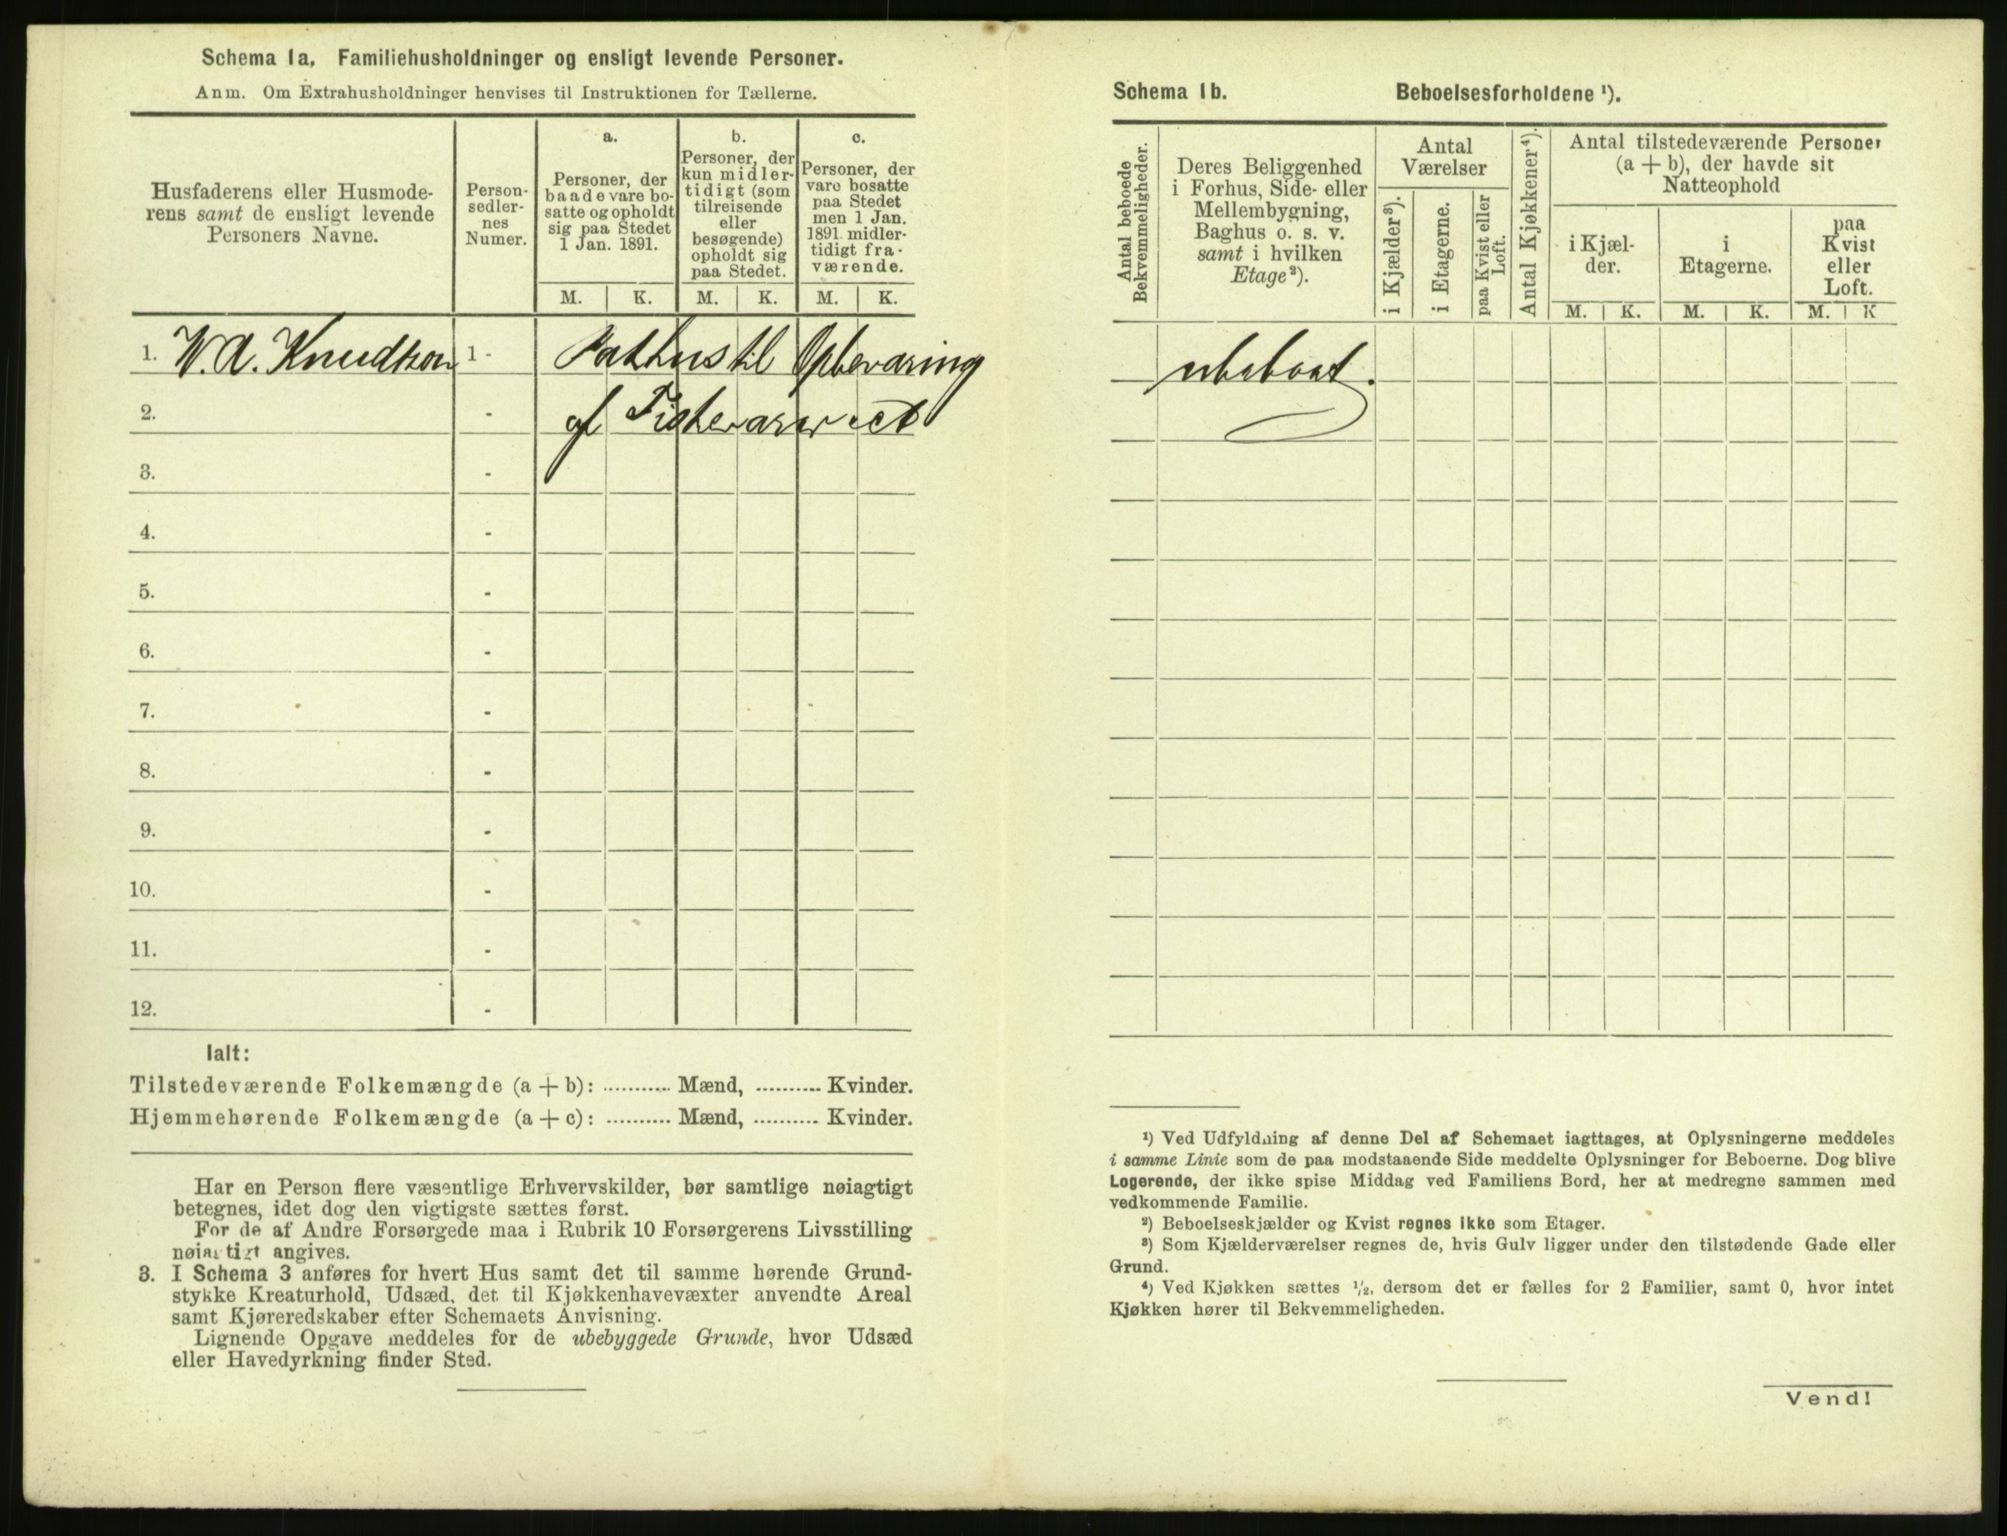 Schema 1a. Familiehusholdninger og ensligt levende Personer.
Anm. Om Extrahusholdninger henvises til Instruktionen for Tællerne.
Husfaderens eller Husmode-
rens samt de ensligt levende
Personers Navne.
Person-
sedler-
nes
Numer.
a.
Personer, der
baade vare bo-
satte og opholdt
sig paa Stedet
1 Jan. 1891.
b.
Personer, der
kun midler-
tidigt (som
tilreisende
eller
besøgende)
opholdt sig
paa Stedet.
c.
Personer, der
vare bosatte
paa Stedet
men 1 Jan.
1891 midler-
tidigt fra-
værende.
M. K. M. K. M. K.
1. W. A. Knudtzon 1 - Pakhus til Opbevaring
2. - af Fiskevarer etc
3. -
4. -
5. -
6. -
7. -
8. -
9. -
10. -
11. -
12. -
Ialt:
Tilstedeværende Folkemængde (a + b): ........... Mænd, .......... Kvinder.
Hjemmehørende Folkemængde (a + c): .......... Mænd, .......... Kvinder.
Har en Person flere væsentlige Erhvervskilder, bør samtlige nøiagtigt
betegnes, idet dog den vigtigste sættes først.
For de af Andre Forsørgede maa i Rubrik 10 Forsørgerens Livsstilling
nøiagtigt angives.
3. I Schema 3 anføres for hvert Hus samt det til samme hørende Grund-
stykke Kreaturhold, Udsæd, det til Kjøkkenhavevæxter anvendte Areal
samt Kjøreredskaber efter Schemaets Anvisning.
Lignende Opgave meddeles for de ubebyggede Grunde, hvor Udsæd
eller Havedyrkning finder Sted.
Schema 1b. Beboelsesforholdene ¹).
Antal beboede
Bekvemmeligheder.
Deres Beliggenhed
i Forhus, Side- eller
Mellembygning,
Baghus o. s. v.
samt i hvilken
Etage²).
Antal
Værelser
i Kjælder³).
i Etagerne.
paa Kvist eller
Loft.
Antal Kjøkkener⁴).
Antal tilstedeværende Personer
(a + b), der havde sit
Natteophold
i Kjæl-
der.
i
Etagerne.
paa
Kvist
eller
Loft.
M. K. M. K. M. K
ubeboet.
¹) Ved Udfyldning af denne Del af Schemaet iagttages, at Oplysningerne meddeles
i samme Linie som de paa modstaaende Side meddelte Oplysninger for Beboerne. Dog blive
Logerende, der ikke spise Middag ved Familiens Bord, her at medregne sammen med
vedkommende Familie.
²) Beboelseskjælder og Kvist regnes ikke som Etager.
³) Som Kjælderværelser regnes de, hvis Gulv ligger under den tilstødende Gade eller
Grund.
⁴) Ved Kjøkken sættes ½, dersom det er fælles for 2 Familier, samt 0, hvor intet
Kjøkken hører til Bekvemmeligheden.
Vend!